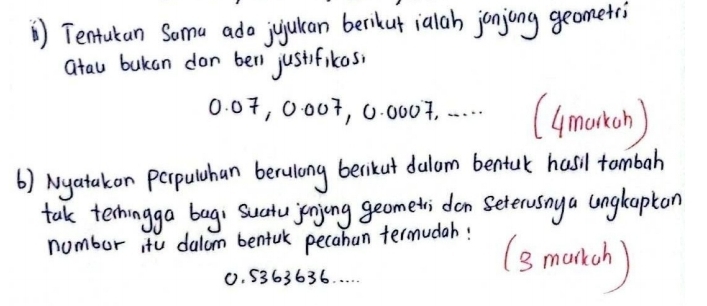 ii) Tentukan Sama ada jujukan berikut ialah janjang geometri
atau bukan dan beri justifikasi
0.07, 0.007, 0.0007, .....
(4 markah)
b) Nyatakan perpuluhan berulang berikut dalam bentuk hasil tambah
tak terhingga bagi suatu janjang geometri dan seterusnya ungkapkan
nombor itu dalam bentuk pecahan termudah :
(3 markah)
0.5363636.....